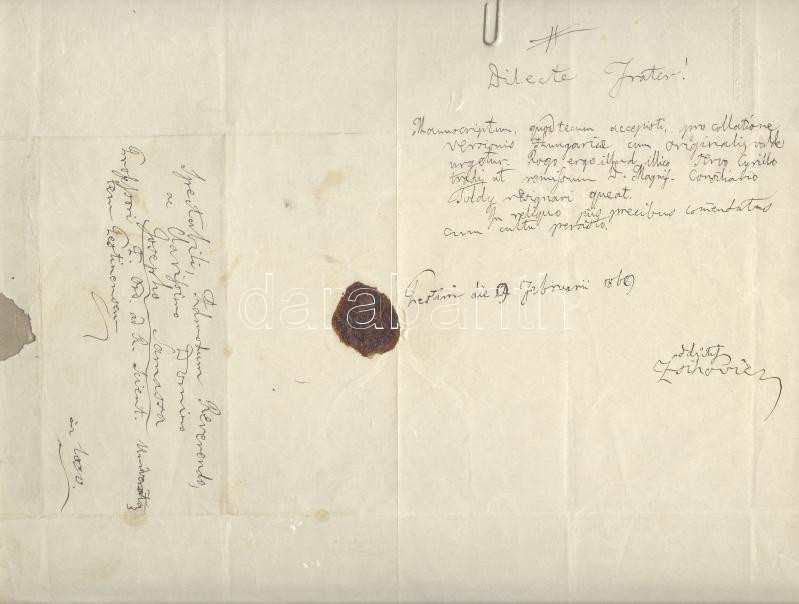 Dilecte Frater!
Manuscriptum, quod tecum accepisti, pro collatione
versionis Hungaricae cum originali, valde
urgetur. Rogo ergo illud illico Servo Cyrillo
tradi, ut remissum D. Magnif. Consiliario
Toldy resignari queat.
In reliquo piis precibus comendatus
cum cultu persisto.
Pestini die 19 Februarii 186
addictus
Zsihovics
Spectabili, Admodum Reverendo,
ac Clarissimo Domino
Josepho Samassa
Professori P. Ord. ad R. Scient. Universita
tem Pestinensem
in loco.
darabanth